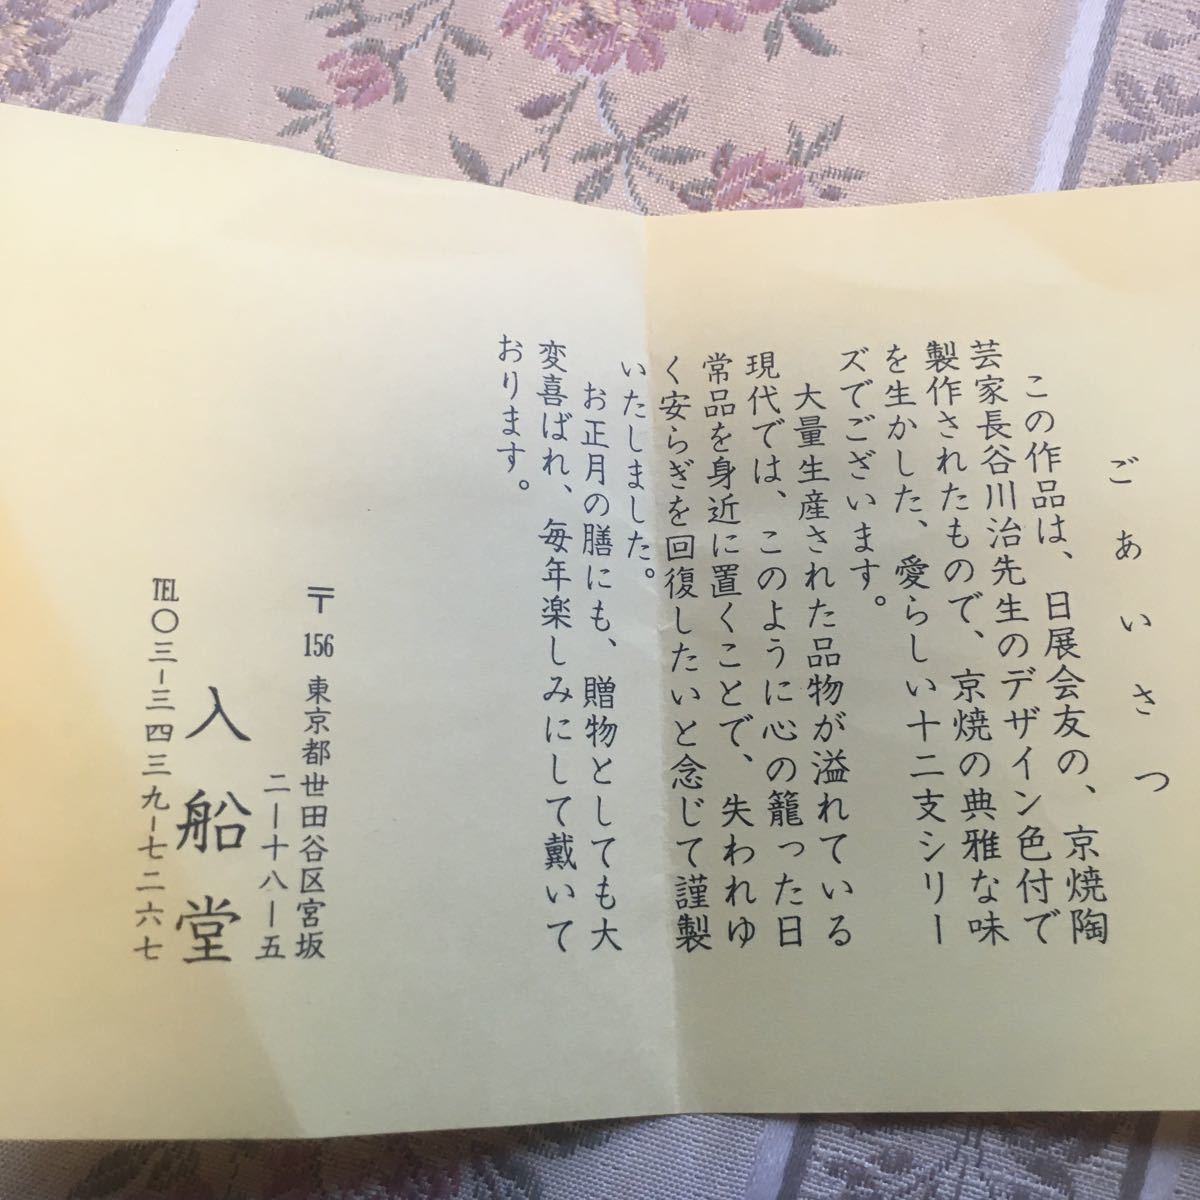 ごあいさつ
この作品は、日展会友の、京焼陶
芸家長谷川治先生のデザイン色付で
製作されたもので、京焼の典雅な味
を生かした、愛らしい十二支シリー
ズでございます。
大量生産された品物が溢れている
現代では、このように心の籠った日
常品を身近に置くことで、失われゆ
く安らぎを回復したいと念じて謹製
いたしました。
お正月の膳にも、贈物としても大
変喜ばれ、毎年楽しみにして戴いて
おります。
〒156 東京都世田谷区宮坂
二ー十八ー五
入船堂
TEL〇三ー三四三九ー七二六七